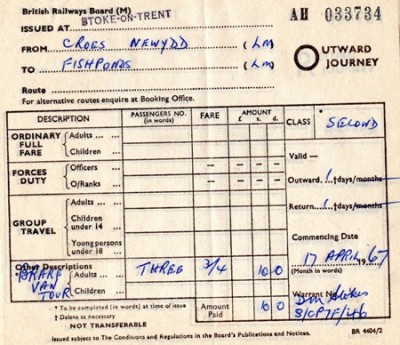 British Railways Board (M)
AH 033734
ISSUED AT STOKE-ON-TRENT
FROM CROES NEWYDD (LM)
TO FISHPONDS (LM)
OUTWARD JOURNEY
Route
For alternative routes enquire at Booking Office.
DESCRIPTION PASSENGERS NO. (in words) FARE AMOUNT £ s. d. CLASS SECOND
ORDINARY FULL FARE Adults ... ...
Children ...
Valid —
FORCES DUTY Officers ... — —
O/Ranks ... — —
Outward 1 †days/months
Return 1 †days/months
GROUP TRAVEL Adults ...
Children under 14 ...
Young persons under 18 ...
Commencing Date
17 APRIL 67
(Month in words)
Other Descriptions
BRAKE VAN TOUR Adults ... THREE 3/4 10 0
Children ...
Warrant No.
* To be completed (in words) at time of issue
† Delete as necessary
Amount Paid 10 0
NOT TRANSFERABLE
Issued subject to The Conditions and Regulations in the Board's Publications and Notices.
BR 4404/2